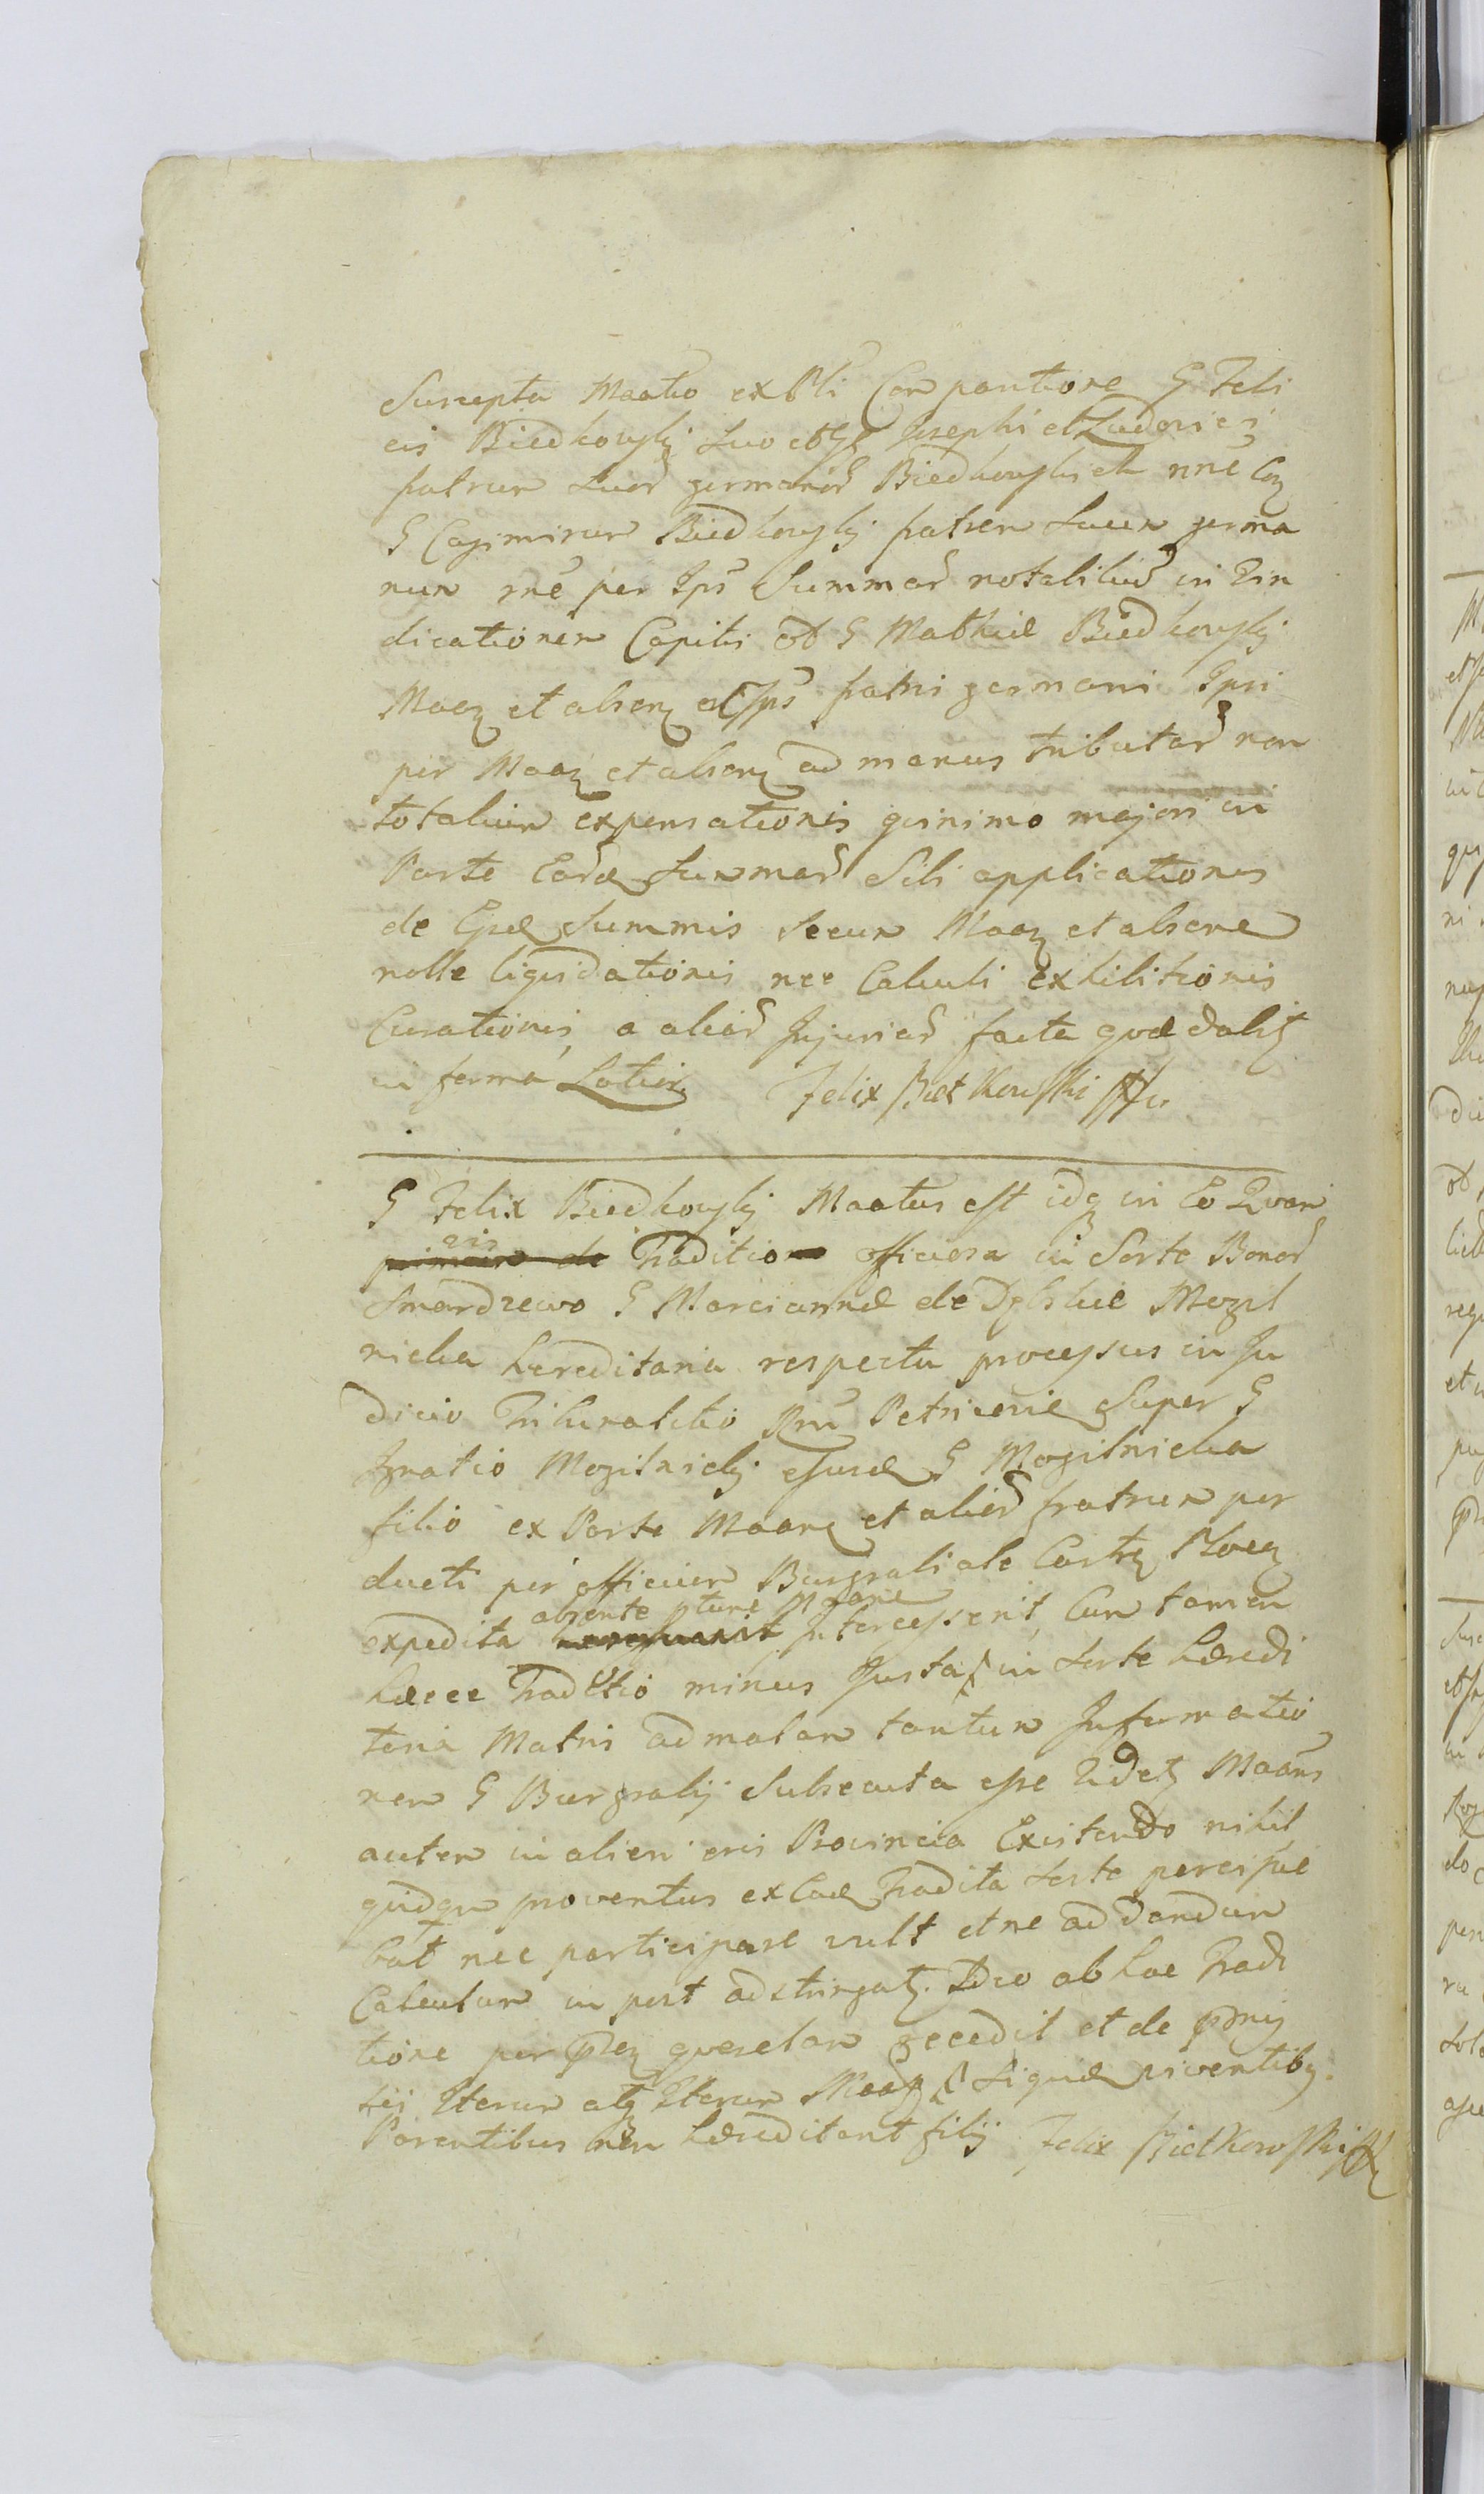 Suscepta Maatio ex Pli Comparitione G Feli
cis Biedkowskj suo et Josephi et Ludovici
fatrum suor germanor Biedkowskich nne Con
G Casimirum Biedkowskj fatrem suum germa
num rne per Ips Summar notabilium in Vin
dicationem Capitis ob G Mathiæ Biedkowskj
Maan et alsen et Ips fatris germani Ipsi
per Maan et alsen ad manus tributar non
totalium Expensationis quinimo majori in
Parte Eard Summar Sibi applicationis
de Ejsd Summis secum Maan et alsene
nolle liquidationis nec Calculi Exhibitionis
Curationis, a aliar Injuriar facta quæ dabit
in forma Latiori Felix Bietkowski
G Felix Biedkowskj Maatus est idq in Eo Quoni
eis
primam de Traditio officiosa in Sorte Bonor
Smardzewo G Marciannæ de Dębskie Mogil
nicka hereditaria respectu processus in Ju
dicio Tribunalitio Rni Petricoviæ Super G
Ignatio Mogilnickj ejusd G Mogilnicka
filio ex Parte Maane et alior fratrum per
ducti per officium Burgrabiale Castren Plocen
absente ptune Maane
expedita Intercesserit, Cum tamen
hæcce Traditio minus Justa in Sorte Hæredi
taria Matris ad malam tantum Informatio
nem G Burgrabij Subsecuta esse Videt Maans
autem in alieni eris Provincia Existendo nihil
quidqm proventus ex Ead Tradita Sorte percipie
bat nec participare vult et ne ad dandum
Calculum in post adstringat. Ideo ab hac Tradi
tione per pntem querelam recedit et de pmis
sis Iterum atq Iterum Maan Siquid viventibq
Parentibus non hæreditant filij Felix Bietkowski